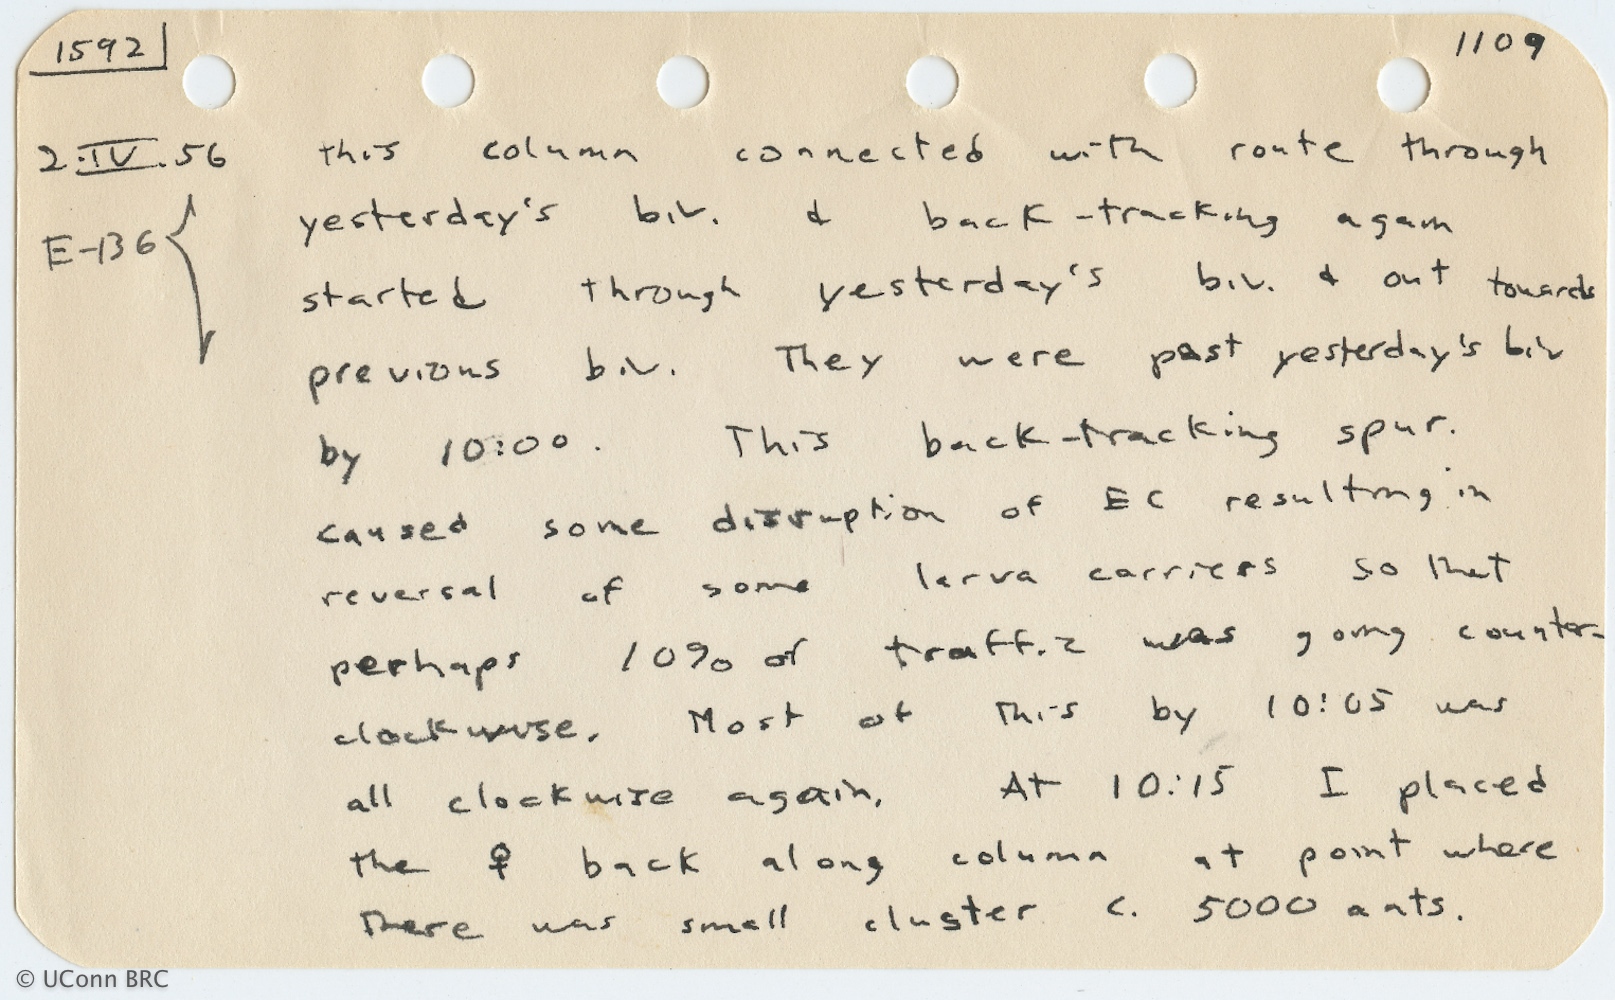 1592
1109
2.IV.56 this column connected with route through
yesterday's biv. & back-tracking again
E-B6
started through yesterday's biv. & out towards
previous biv. They were past yesterday's biv
by 10:00. This back-tracking spur.
caused some disruption of EC resulting in
reversal of some larva carriers so that
perhaps 10% of traffic was going counter-
clockwise. Most of this by 10:05 was
all clockwise again. At 10:15 I placed
the ♀ back along column at point where
there was small cluster c. 5000 ants.
© UConn BRC